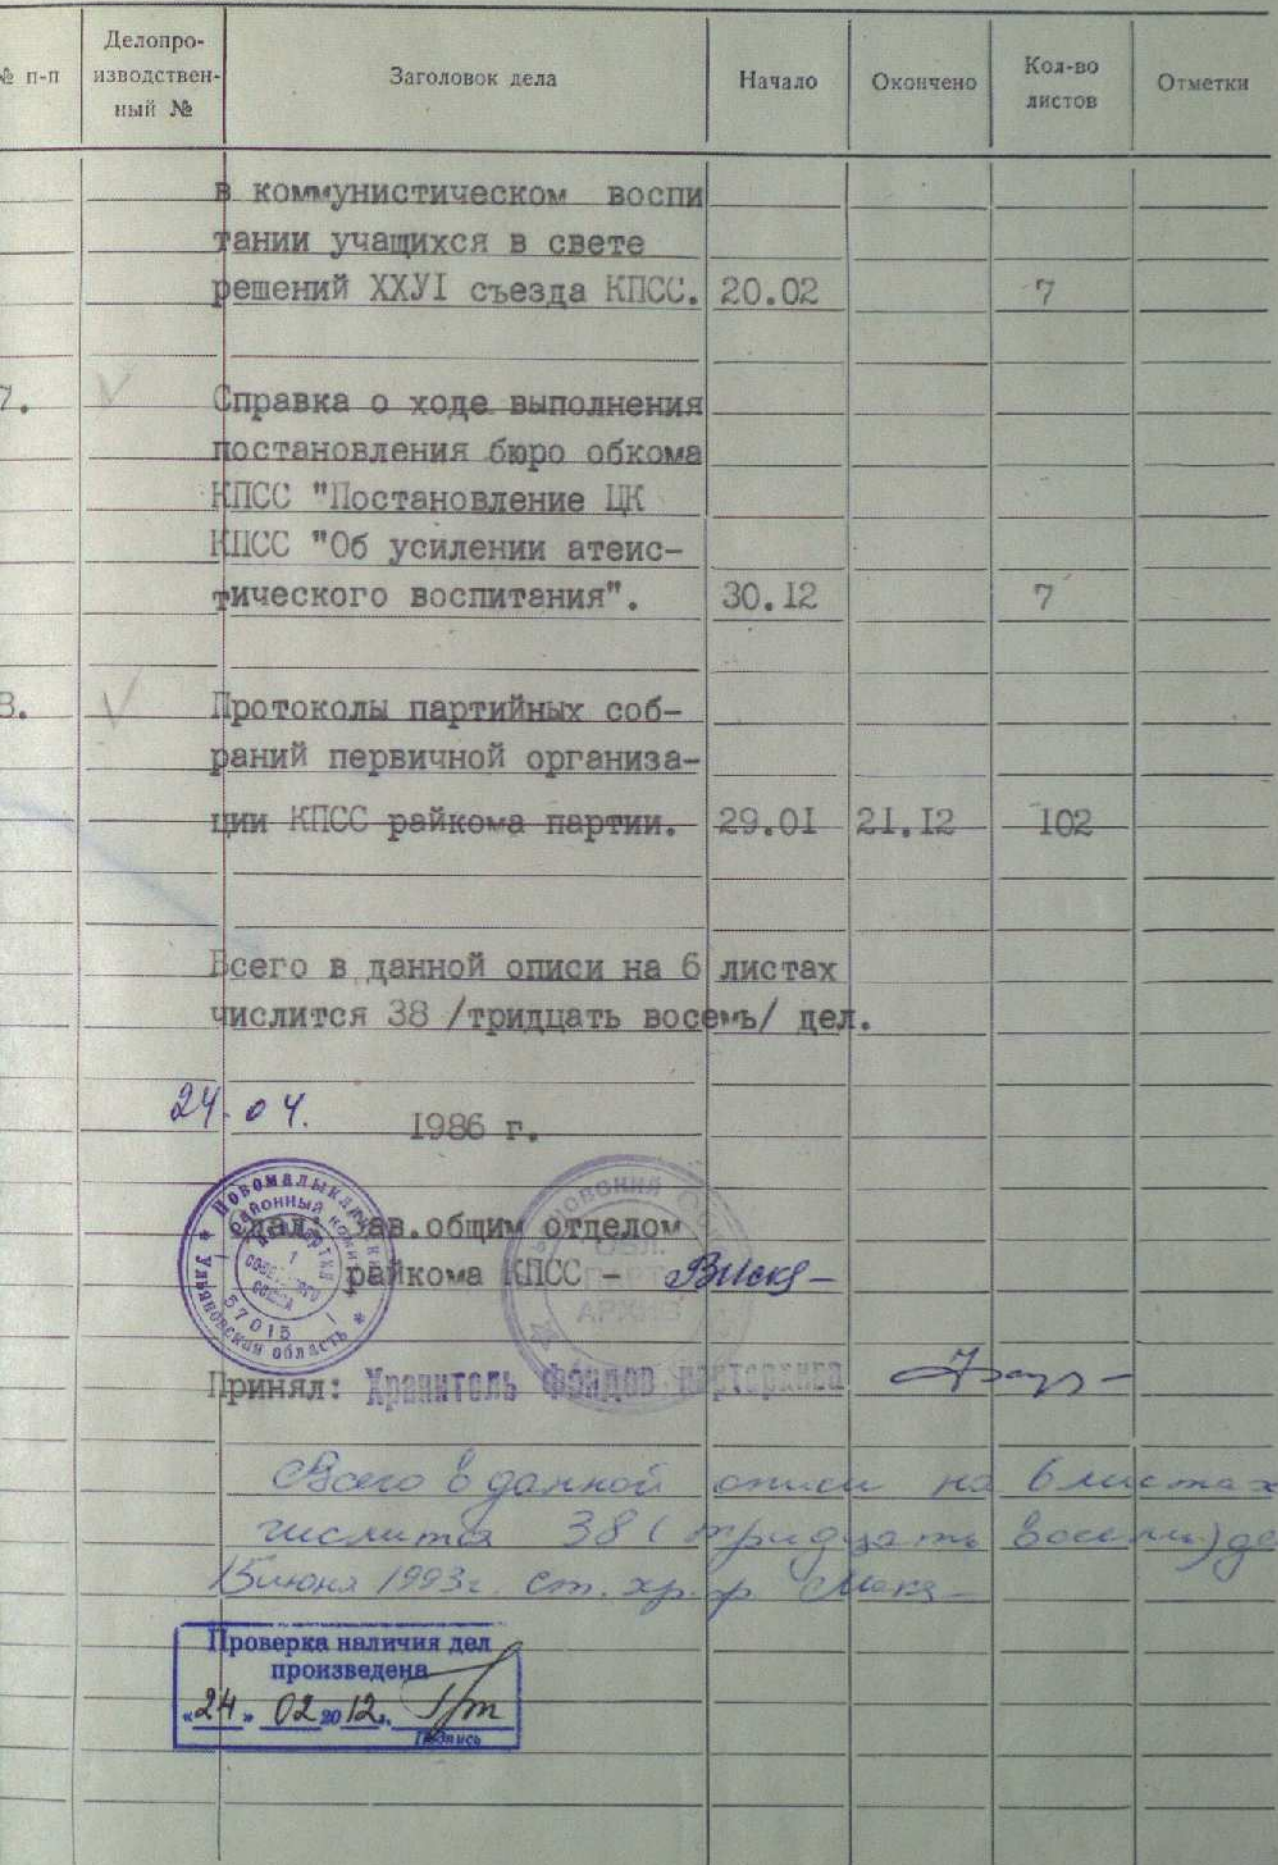 № п-п Делопро-изводствен-ный № Заголовок дела Начало Окончено Кол-во листов Отметки
в коммунистическом воспи
тании учащихся в свете
решений ХХУI съезда КПСС. 20.02 7
7. Справка о ходе выполнения
постановления бюро обкома
КПСС "Постановление ЦК
КПСС "Об усилении атеис-
тического воспитания". 30.12 7
8. Протоколы партийных соб-
раний первичной организа-
ции КПСС райкома партии. 29.01 21.12 102
Всего в данной описи на 6 листах
числится 38 /тридцать восемь/ дел.
24.04. 1986 г.
Сдал: Зав.общим отделом
райкома КПСС -
Принял: Хранитель фондов партархива
Всего в данной описи на 6 листах
числится 38 (тридцать восемь) де
15 июня 1993г. ст. хр. ф.
Проверка наличия дел
произведена
«24» 02 2012г.
Подпись
Районный комитет
Ульяновская область
57015
ОБЛ.
ПАРТ
АРХИВ